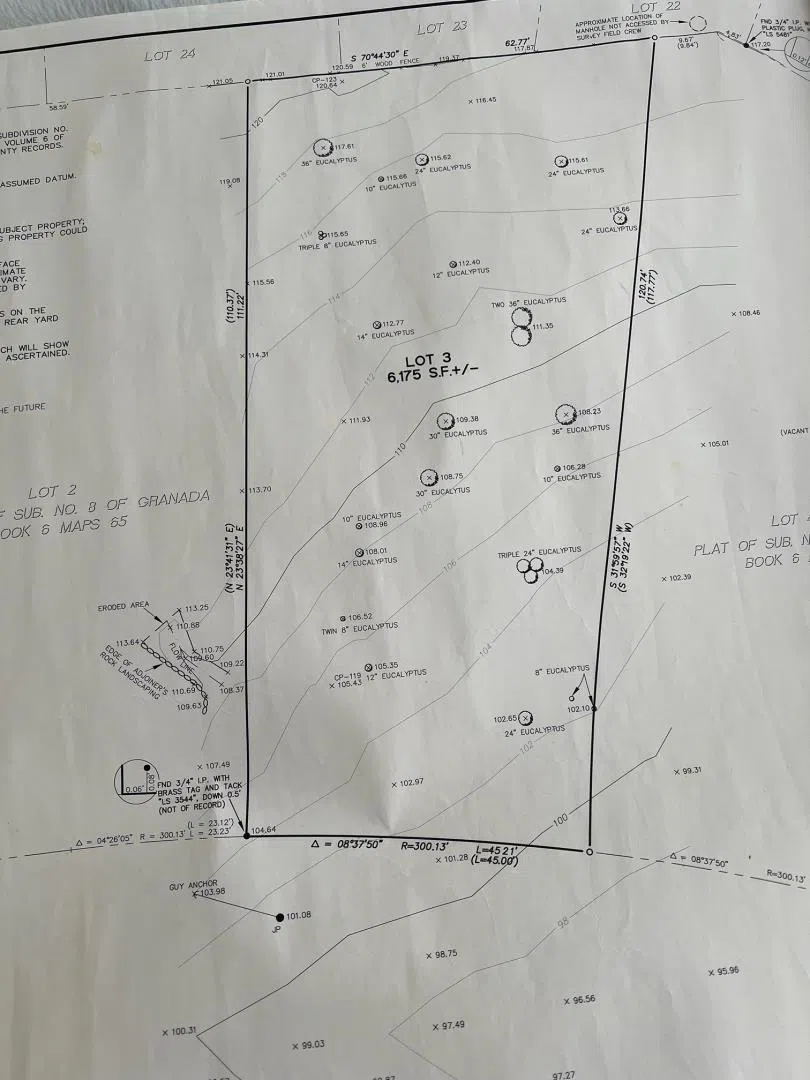 LOT 22
LOT 23
LOT 24
APPROXIMATE LOCATION OF
MANHOLE NOT ACCESSED BY
SURVEY FIELD CREW
FND 3/4" I.P. W
PLASTIC PLUG,
"LS 5481"
4.83'
117.20
0.12'
9.67'
(9.84')
S 70°44'30" E
62.77'
117.87
6' WOOD FENCE
119.37
120.59
121.01
121.05
CP-123
120.64
58.59'
120
116.45
SUBDIVISION NO.
VOLUME 6 OF
NTY RECORDS.
ASSUMED DATUM.
UBJECT PROPERTY;
G PROPERTY COULD
FACE
IMATE
VARY.
ED BY
S ON THE
REAR YARD
CH WILL SHOW
ASCERTAINED.
HE FUTURE
117.61
36" EUCALYPTUS
115.62
24" EUCALYPTUS
115.61
24" EUCALYPTUS
115.66
10" EUCALYTUS
118
119.08
113.66
24" EUCALYPTUS
116
115.65
TRIPLE 8" EUCALYPTUS
112.40
12" EUCALYPTUS
115.56
114
120.74'
(117.77')
(110.37')
111.22'
TWO 36" EUCALYPTUS
111.35
112.77
14" EUCALYPTUS
108.46
114.31
LOT 3
6,175 S.F.+/-
112
111.93
109.38
30" EUCALYPTUS
108.23
36" EUCALYPTUS
110
105.01
(VACANT
108.75
30" EUCALYTUS
106.28
10" EUCALYPTUS
113.70
LOT 2
F SUB. NO. 8 OF GRANADA
OOK 6 MAPS 65
108
10" EUCALYPTUS
108.96
LOT
PLAT OF SUB. N
BOOK 6
108.01
14" EUCALYPTUS
106
TRIPLE 24" EUCALYPTUS
104.39
(N 23°41'31" E)
N 23°38'27" E
S 31°59'57" W
(S 32°19'22" W)
102.39
ERODED AREA
113.25
110.88
113.64
FLOW LINE
110.75
109.60
109.22
EDGE OF ADJOINER'S
ROCK LANDSCAPING
110.69
108.37
109.63
106.52
TWIN 8" EUCALYPTUS
104
105.35
CP-119
12" EUCALYPTUS
105.43
8" EUCALYPTUS
102.10
102.65
24" EUCALYPTUS
102
107.49
0.06'
0.08'
FND 3/4" I.P. WITH
BRASS TAG AND TACK
"LS 3544", DOWN 0.5'
(NOT OF RECORD)
102.97
99.31
100
(L = 23.12')
Δ = 04°26'05" R = 300.13' L = 23.23'
104.64
Δ = 08°37'50" R=300.13' L=45.21'
101.28 (L=45.00')
Δ = 08°37'50" R=300.13'
GUY ANCHOR
103.98
101.08
JP
98
98.75
95.96
96.56
97.49
100.31
99.03
97.27